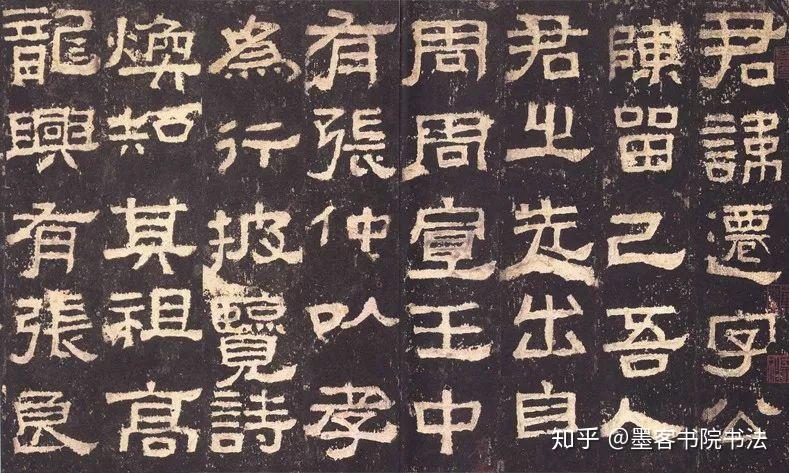 君諱遷字公
陳留己吾人
君之先出自
周周宣王中
有張仲以孝
為行披覽詩
煥知其祖高
龍興有張良
知乎 @墨客书院书法